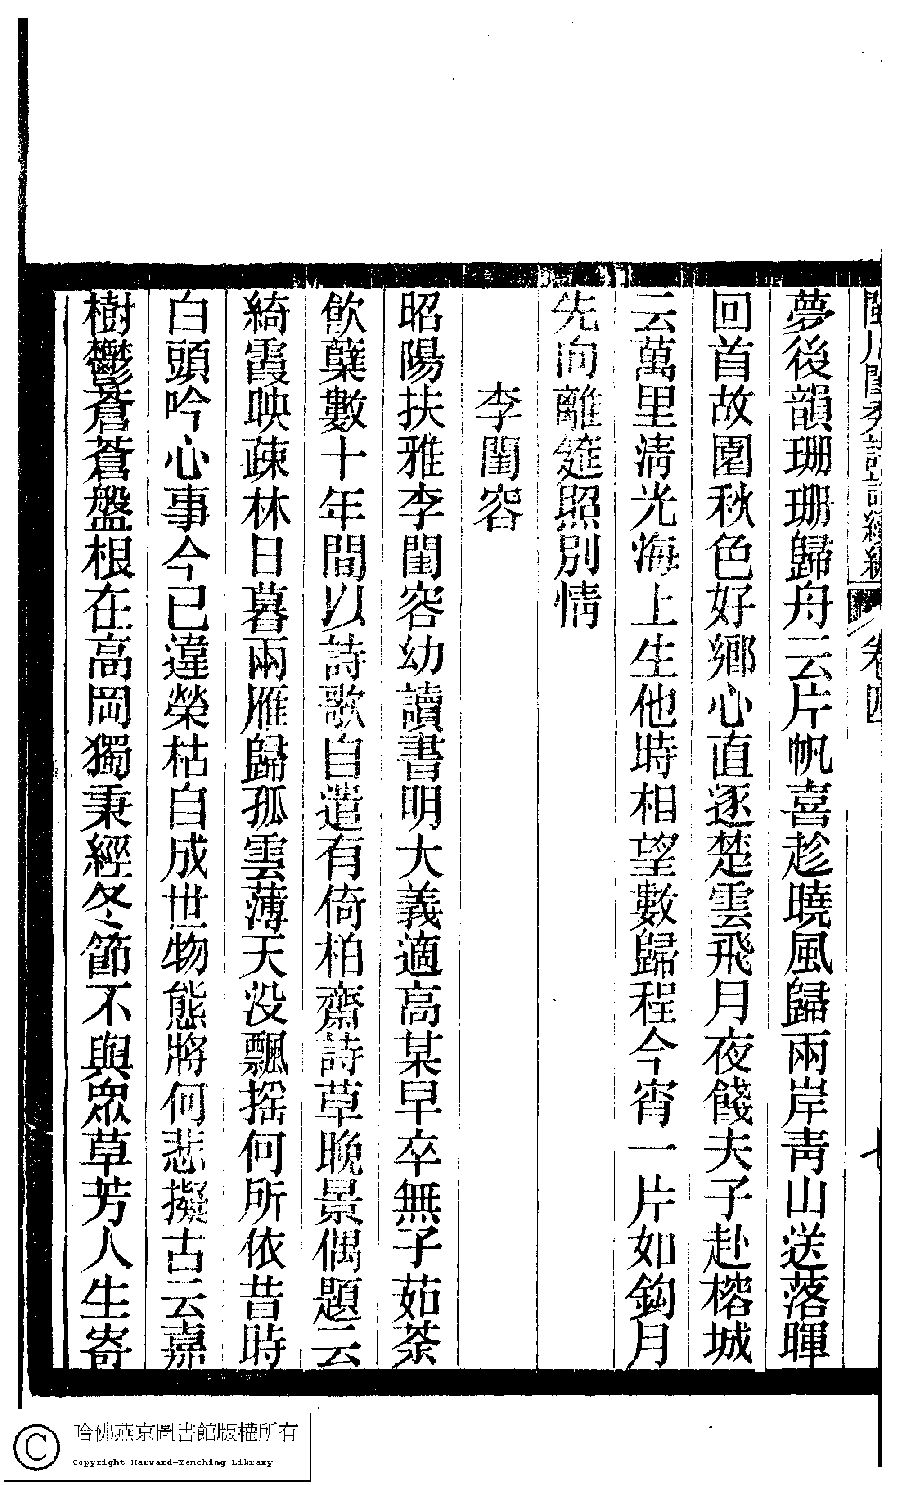 閨秀詩話續編 卷四
夢後韻珊珊歸舟云片帆喜趁曉風歸兩岸青山送落暉
回首故園秋色好鄉心直逐楚雲飛月夜餞夫子赴榕城
云萬里清光海上生他時相望數歸程今宵一片如鈎月
先向離筵照別情
李閨容
昭陽扶雅李閨容幼讀書明大義適高某早卒無子茹荼
飲蘗數十年間以詩歌自遣有倚柏齋詩草晚景偶題云
綺霞映疎林日暮兩雁歸孤雲薄天沒飄搖何所依昔時
白頭吟心事今已違榮枯自成世物態將何悲擬古云嘉
樹鬱蒼蒼盤根在高岡獨秉經冬節不與眾草芳人生寄
哈佛燕京圖書館版權所有
Copyright Harvard-Yenching Library